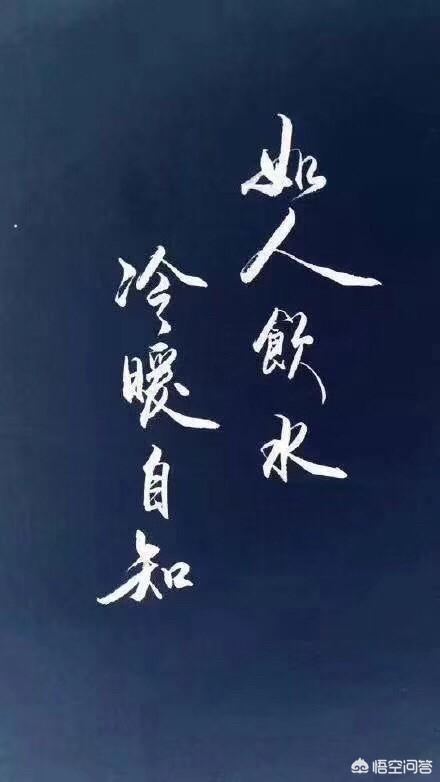 如人飲水
冷暖自知
悟空问答